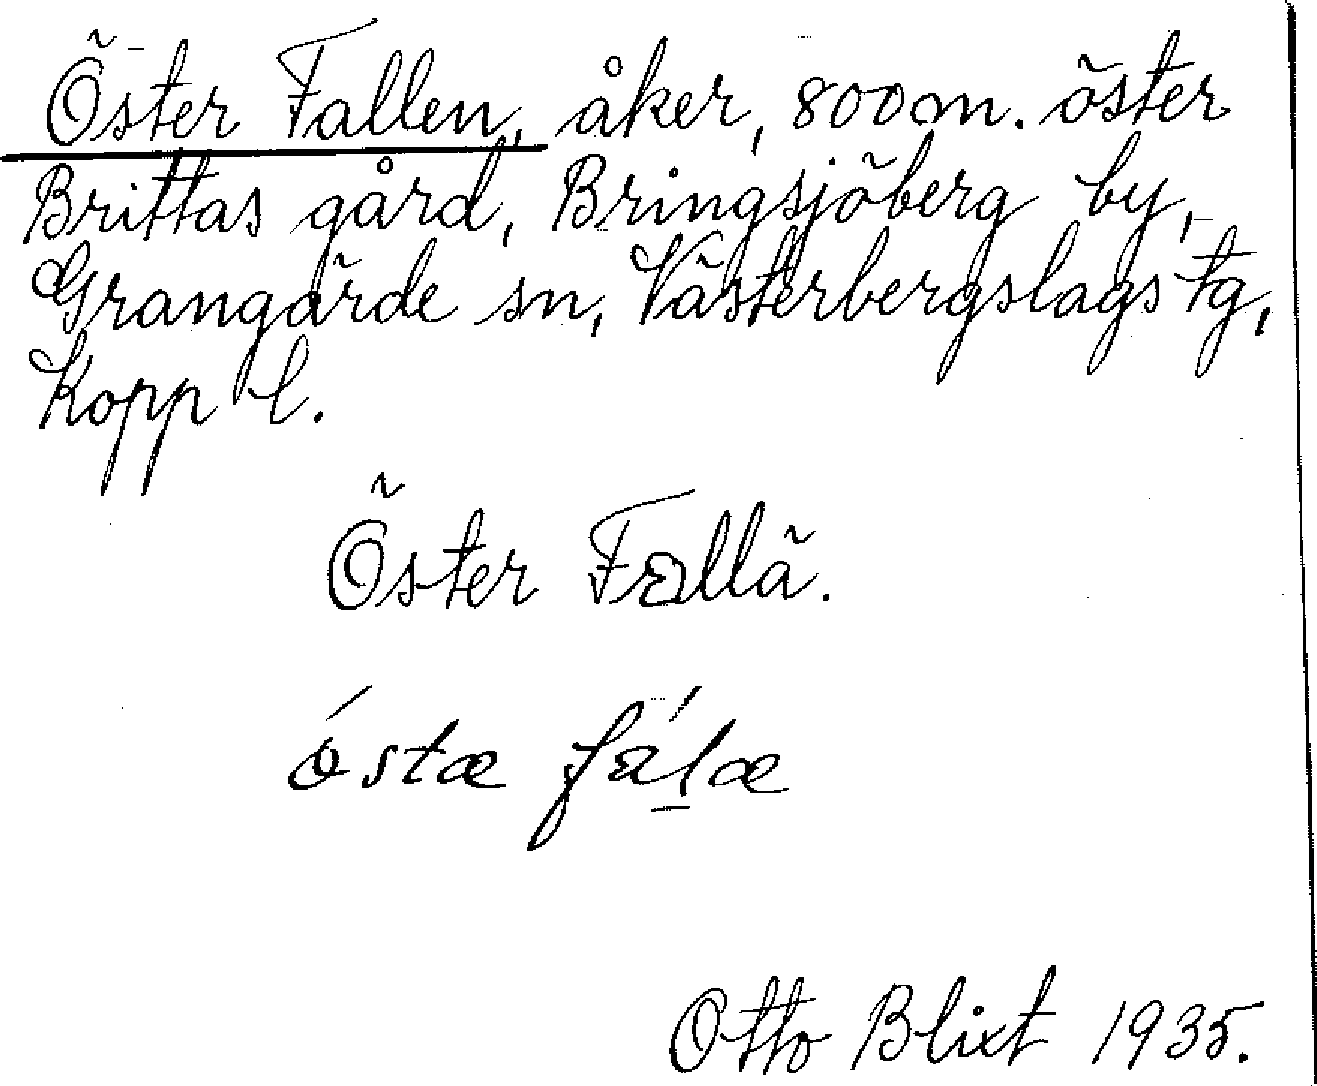 Öster Fallen, åker, 800 m. öster
Brittas gård, Bringsjöberg by,
Grangärde sn, Västerbergslags tg,
Kopp l.
Öster Fallä.
óstæ fálæ
Otto Blixt 1935.